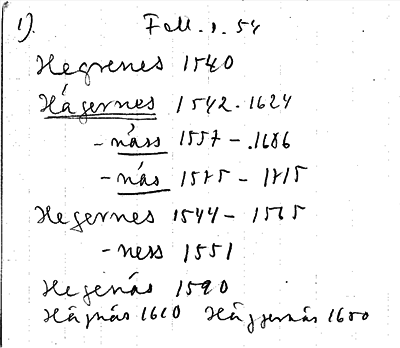 1).
Hegrenes 1540
Hágernes 1542-1624
- näss 1557 - 1686
- näs 1575 - 1715
Hegernes 1544 - 1565
- ness 1551
Hegenäs 1590
Hägnäs 1610 Häggernäs 1680